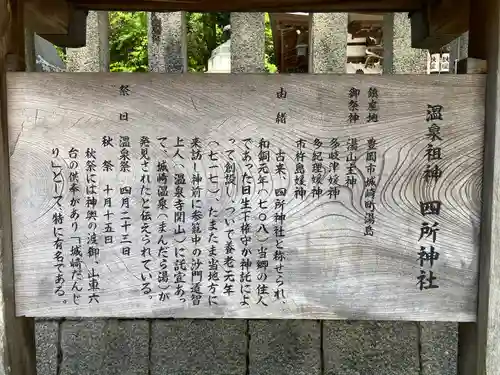 温泉祖神 四所神社
鎮座地 豊岡市城崎町湯島
御祭神 湯山主神
多岐津媛神
多紀理媛神
市杵島媛神
由緒 古来、四所神社と称せられ、
和銅元年(七〇八)当郷の住人
であった日生下権守が神託によ
って創設し、ついで養老元年
(七一七)、たまたま当地方に
来訪し神前に参篭中の沙門道智
上人(温泉寺開山)に託宣あっ
て、城崎温泉(まんだら湯)が
発見されたと伝えられている。
祭日 温泉祭 四月二十三日
秋祭 十月十五日
秋祭には神輿の渡御 山車六
台の供奉があり「城崎だんじ
り」として、特に有名である。